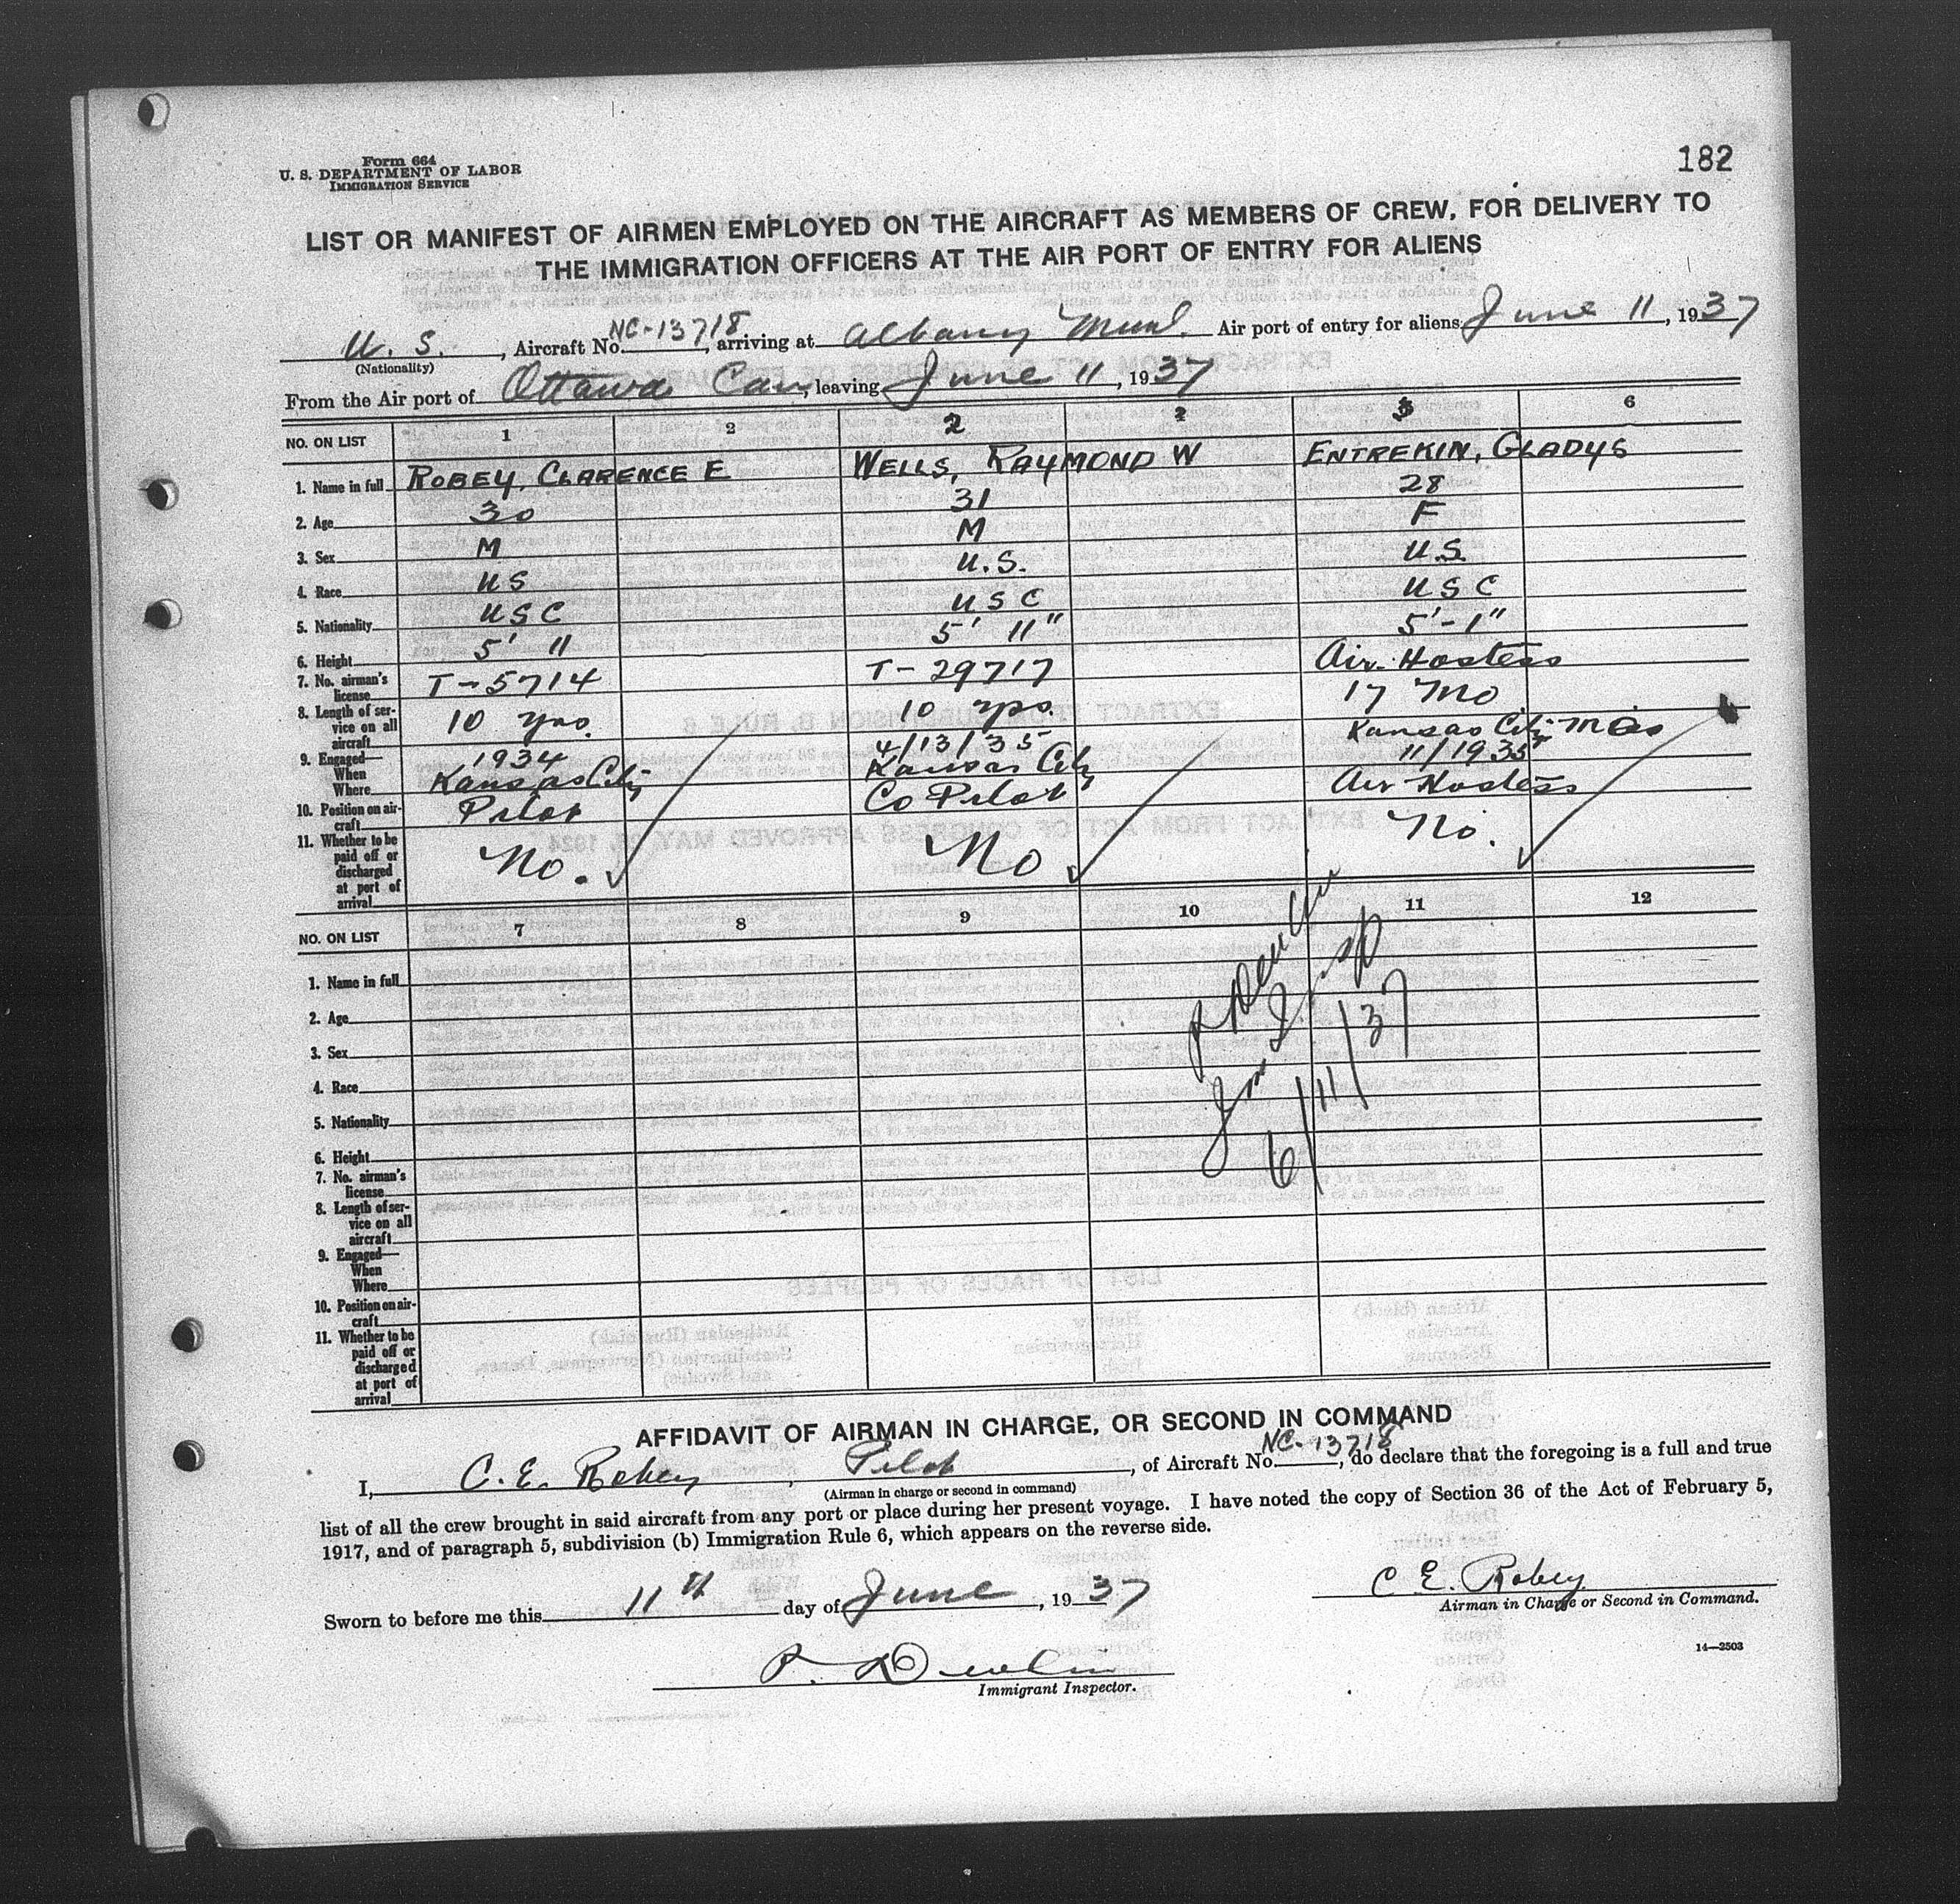 Form 664
U. S. DEPARTMENT OF LABOR
IMMIGRATION SERVICE
182
LIST OR MANIFEST OF AIRMEN EMPLOYED ON THE AIRCRAFT AS MEMBERS OF CREW, FOR DELIVERY TO
THE IMMIGRATION OFFICERS AT THE AIR PORT OF ENTRY FOR ALIENS
U. S., Aircraft No. NC-13718, arriving at Albany Munl. Air port of entry for aliens June 11, 1937
(Nationality)
From the Air port of Ottawa Can, leaving June 11, 1937
NO. ON LIST 1 2 2 3 6
1. Name in full ROBEY, CLARENCE E WELLS, RAYMOND W ENTREKIN, GLADYS
2. Age 30 31 28
3. Sex M M F
4. Race US U.S. U.S.
5. Nationality USC USC USC
6. Height 5' 11 5' 11" 5'-1"
7. No. airman's license T-5714 T-29717 Air Hostess
8. Length of service on all aircraft 10 yrs. 10 yrs. 17 Mo
9. Engaged— When 1934 4/13/35 Kansas City Mo
Where Kansas City Kansas City 11/1935
10. Position on aircraft Pilot Co Pilot Air Hostess
11. Whether to be paid off or discharged at port of arrival No. No No.
NO. ON LIST 7 8 9 10 11 12
1. Name in full
2. Age
3. Sex
4. Race
5. Nationality
6. Height
7. No. airman's
license
8. Length of ser-
vice on all
aircraft
9. Engaged—
When
Where
10. Position on air-
craft
11. Whether to be
paid off or
discharged
at port of
arrival
P. Devlin
Im Insp
6/11/37
AFFIDAVIT OF AIRMAN IN CHARGE, OR SECOND IN COMMAND
I, C. E. Robey, Pilot, of Aircraft No. NC-13718, do declare that the foregoing is a full and true
(Airman in charge or second in command)
list of all the crew brought in said aircraft from any port or place during her present voyage. I have noted the copy of Section 36 of the Act of February 5,
1917, and of paragraph 5, subdivision (b) Immigration Rule 6, which appears on the reverse side.
C E. Robey
Sworn to before me this 11th day of June, 1937
Airman in Charge or Second in Command.
14—2503
P. Devlin
Immigrant Inspector.